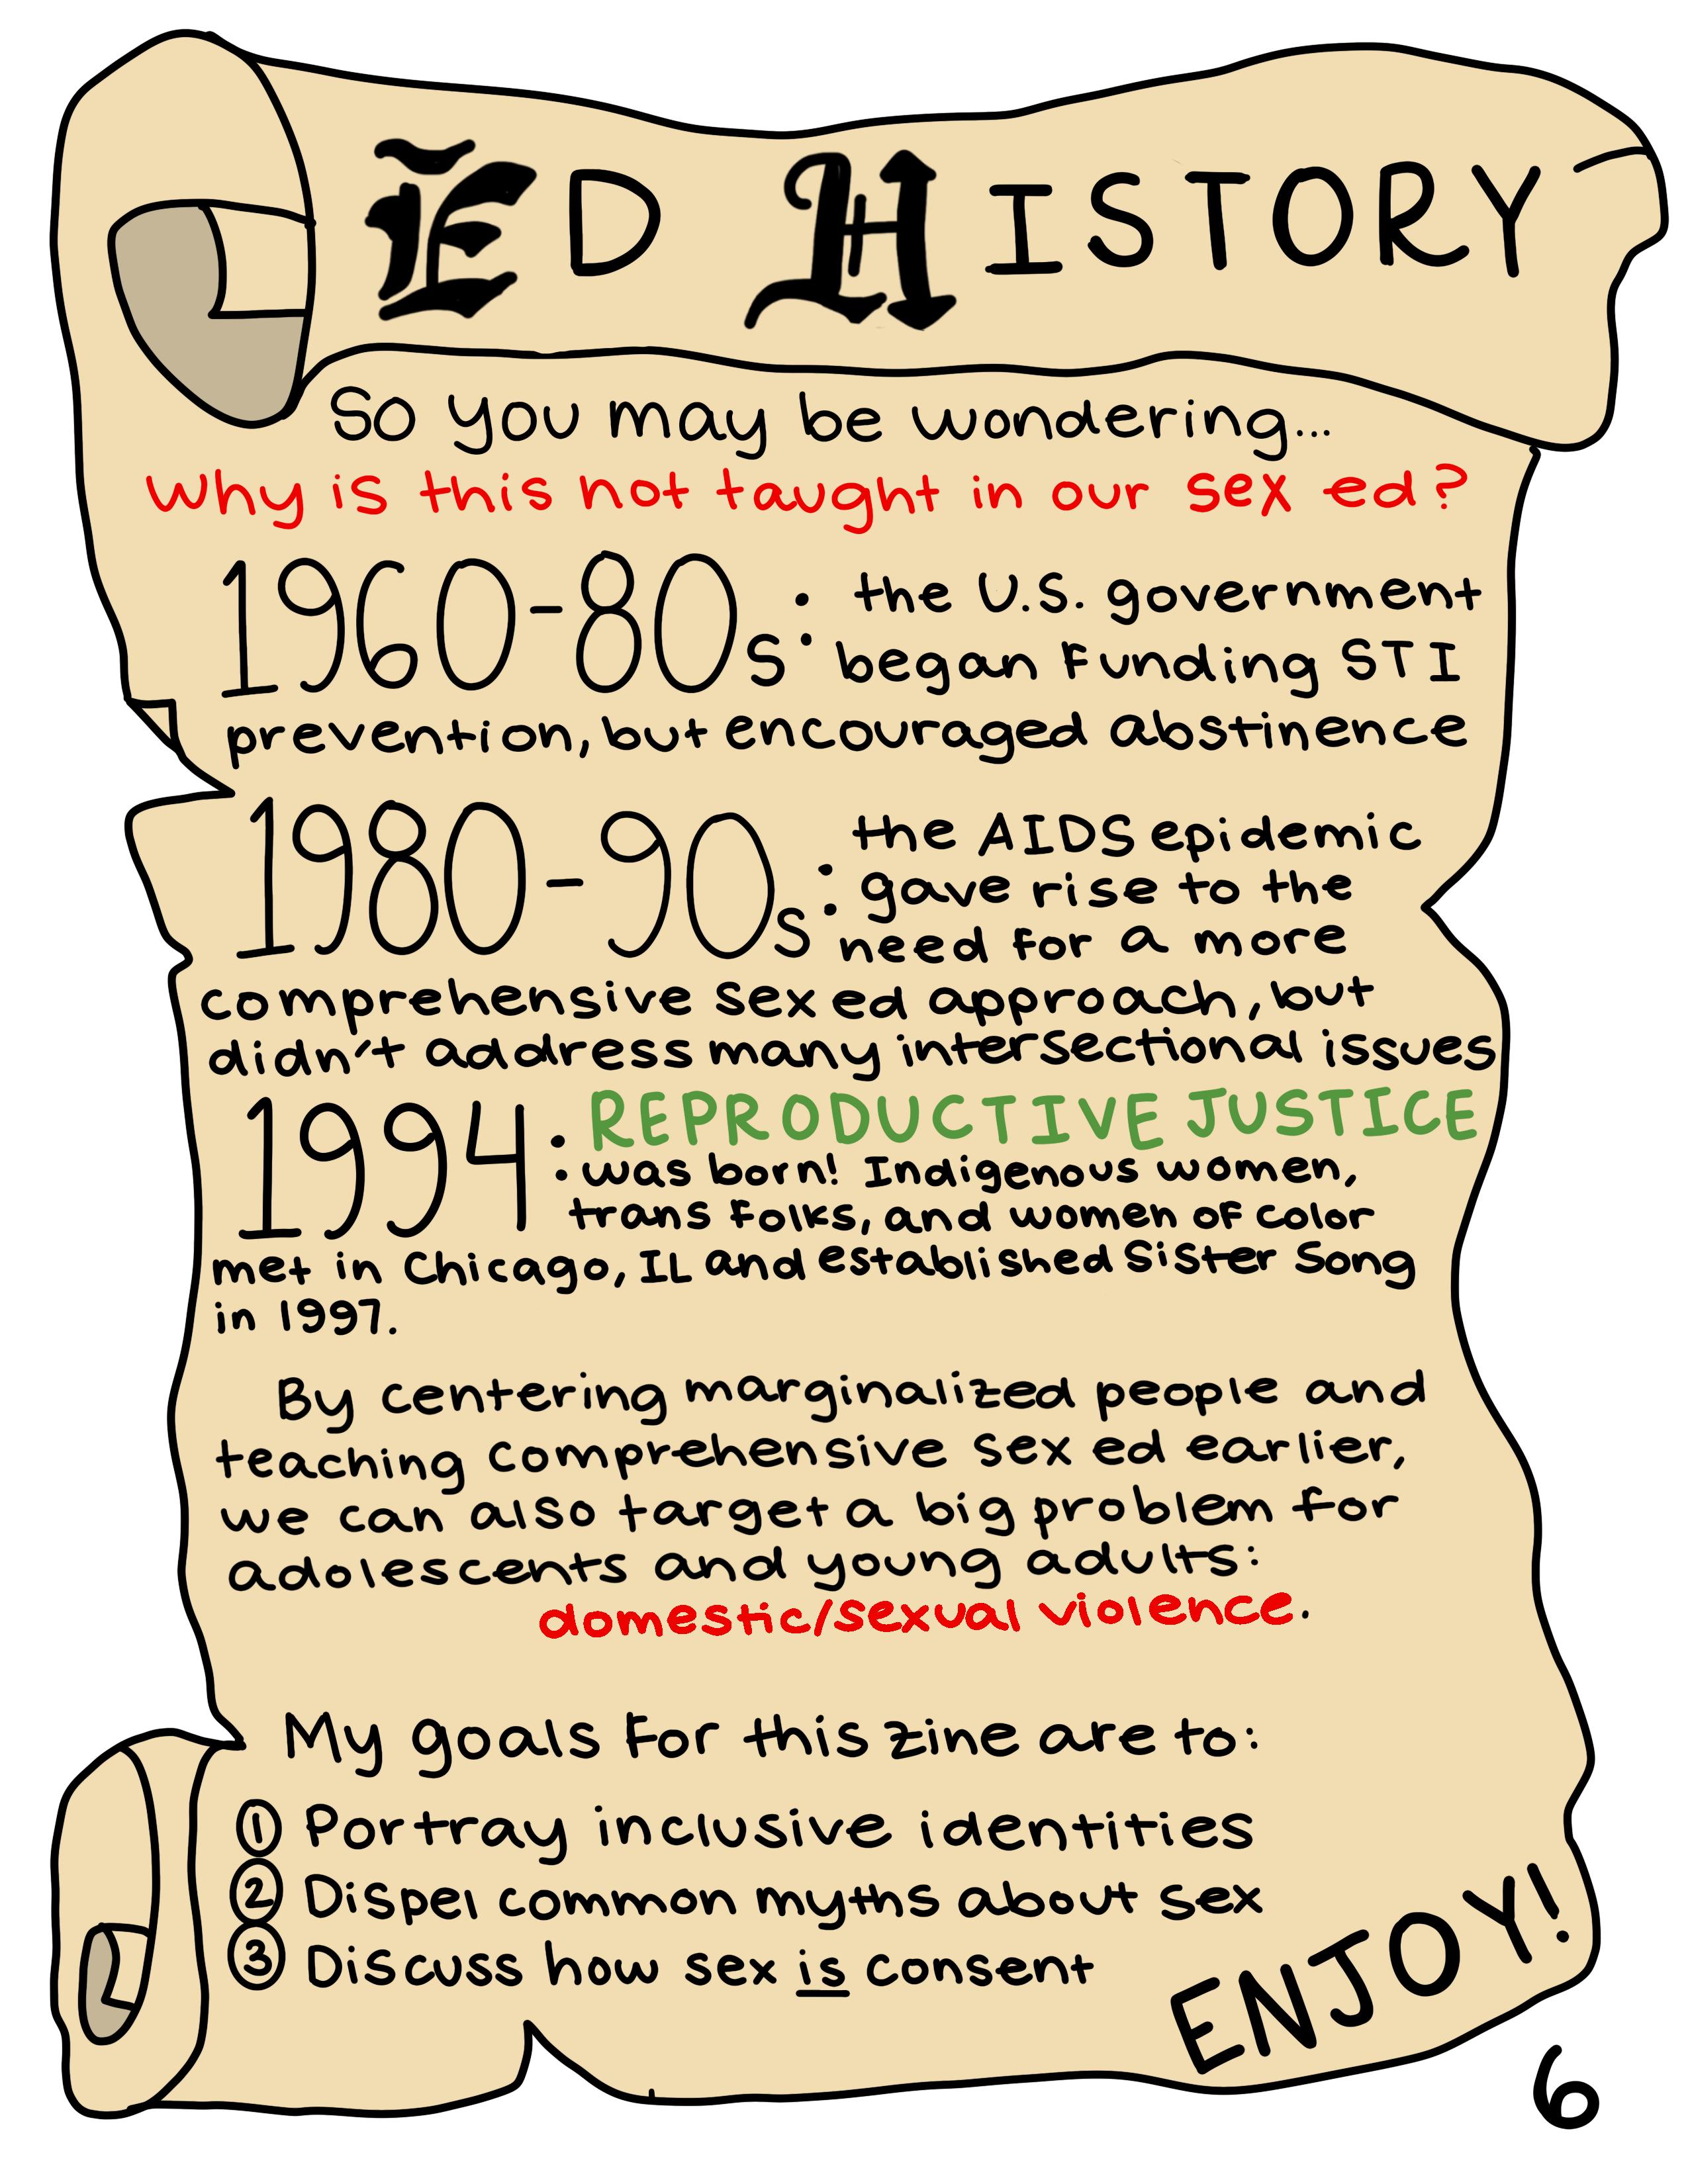 ED HISTORY
So you may be wondering...
Why is this not taught in our sex ed?
1960-80s: the U.S. government
began funding STI
prevention, but encouraged abstinence
1980-90s: the AIDS epidemic
gave rise to the
need for a more
comprehensive sex ed approach, but
didn't address many intersectional issues
1994: REPRODUCTIVE JUSTICE
was born! Indigenous women,
trans folks, and women of color
met in Chicago, IL and established Sister Song
in 1997.
By centering marginalized people and
teaching comprehensive sex ed earlier,
we can also target a big problem for
adolescents and young adults:
domestic/sexual violence.
My goals for this zine are to:
① Portray inclusive identities
② Dispel common myths about sex
③ Discuss how sex is consent
ENJOY!
6